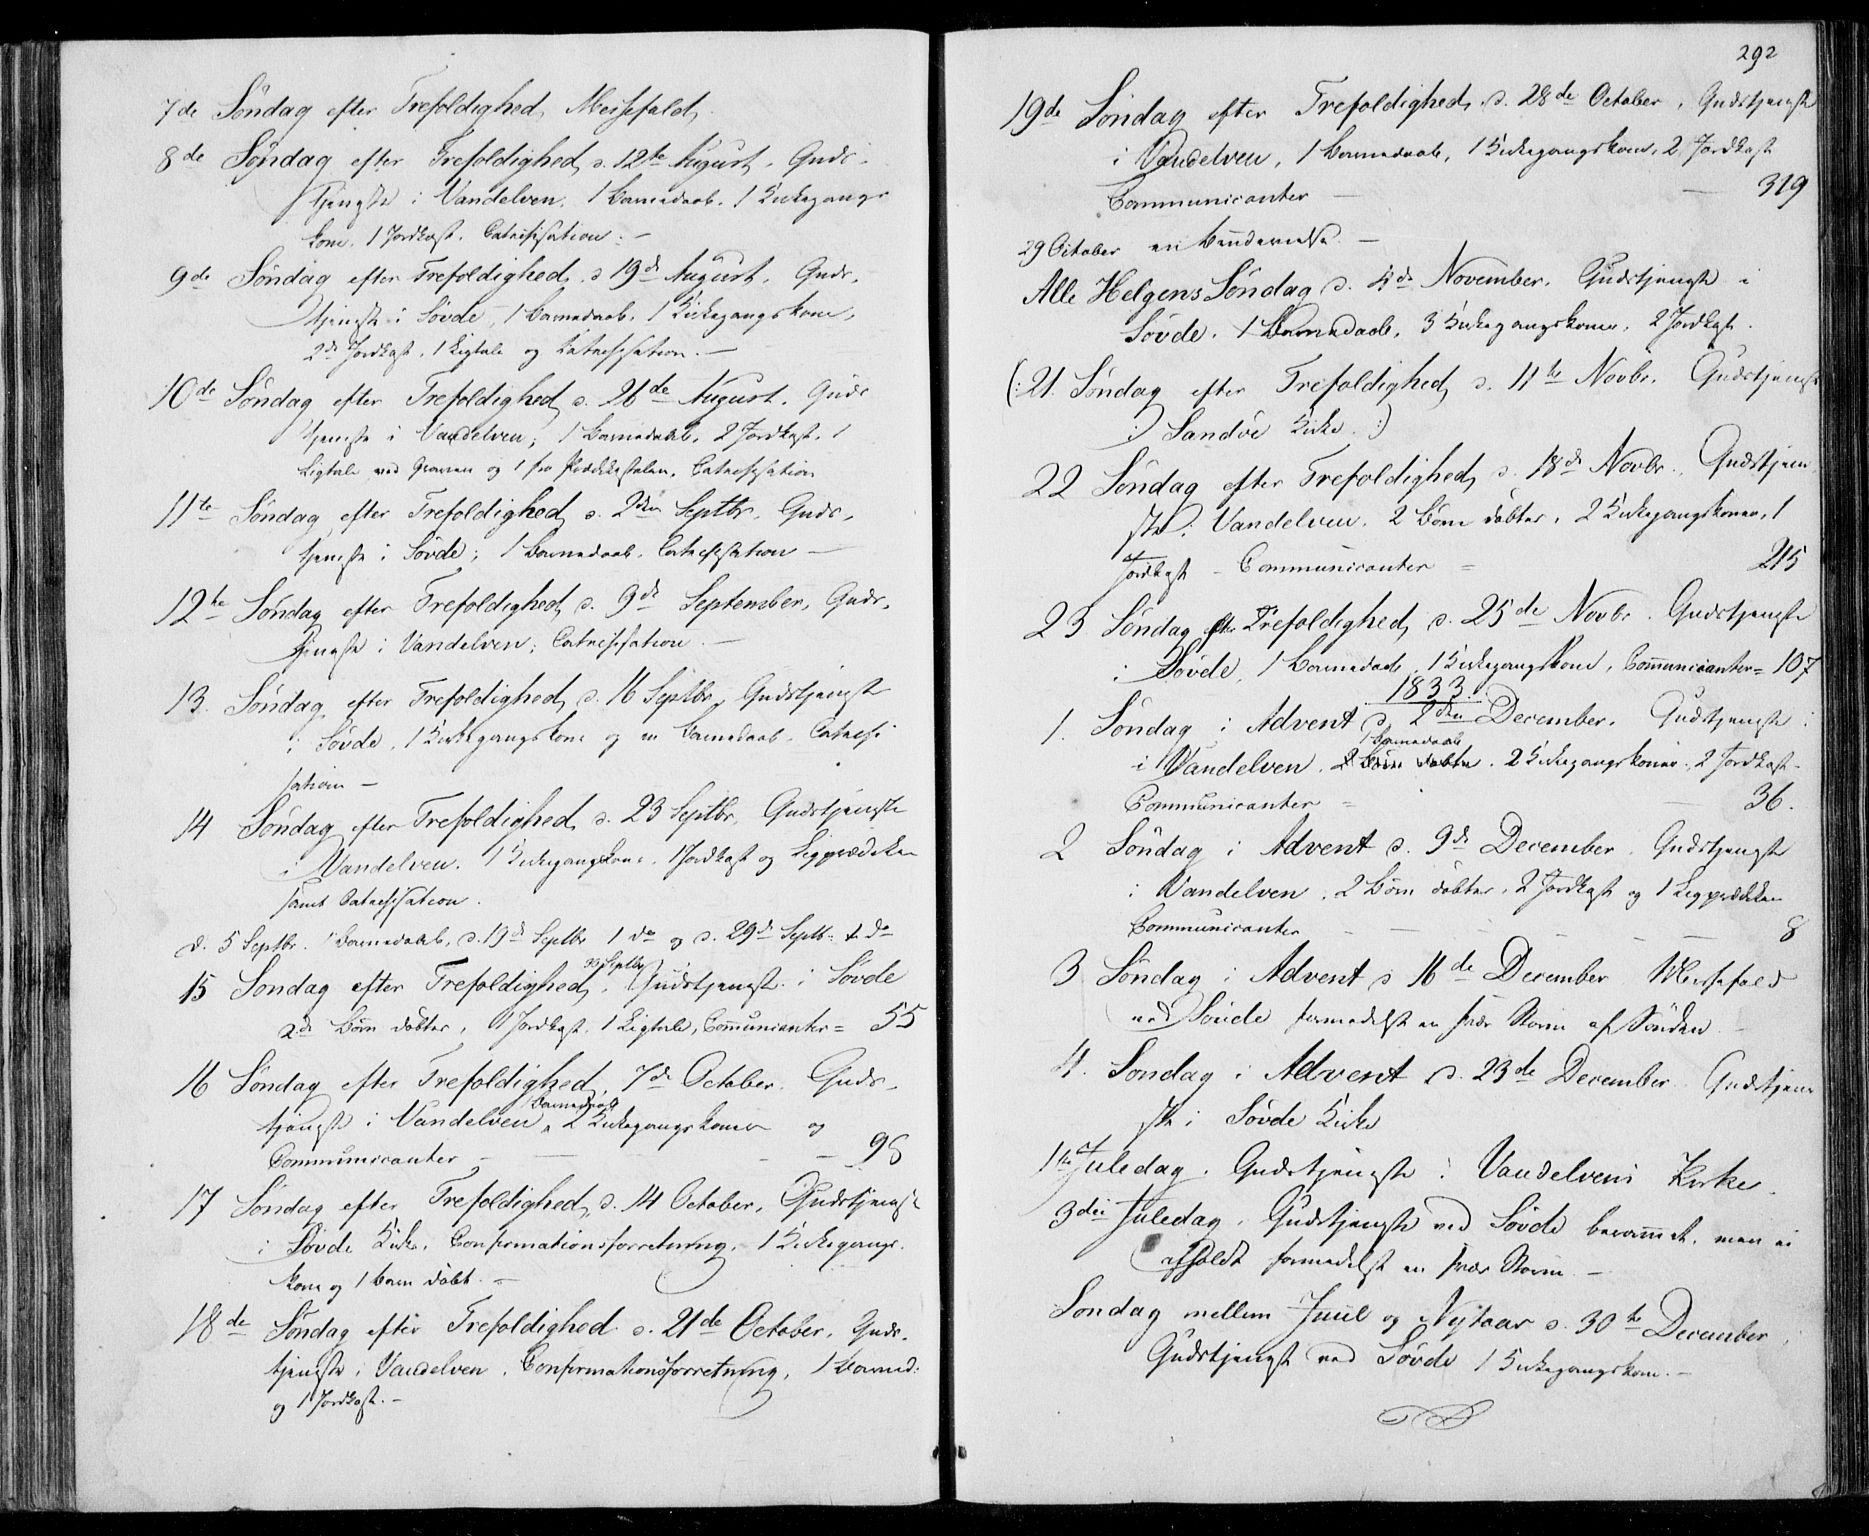 7de Søndag efter Trefoldighed, Messefald.
8de Søndag efter Trefoldighed, d. 12te August, Guds-
tjeneste i Vandelven, 1 Barnedaab, 1 Kirkegangs
kone, 1 Jordkast, Catechisation. –
9de Søndag efter Trefoldighed, d. 19de August, Guds-
tjeneste i Søvde, 1 Barnedaab, 1 Kirkegangskone,
2de Jordkast, 1 Ligtale og Catechisation. –
10de Søndag efter Trefoldighed, d. 26de August, Guds
tjeneste i Vandelven, 1 Barnedaab, 2 Jordkast, 1
Ligtale ved Graven og 1 fra Prædikestolen, Catechisation
11te Søndag efter Trefoldighed, d. 2den Septbr, Guds-
tjeneste i Søvde; 1 Barnedaab, Catechisation –
12te Søndag efter Trefoldighed, d. 9de September, Guds-
tjeneste i Vandelven; Catechisation. –
13. Søndag efter Trefoldighed, d. 16 Septbr, Gudstjeneste
i Søvde, 1 Kirkegangskone og en Barnedaab, Catechi
sation –
14 Søndag efter Trefoldighed, d. 23 Septbr, Gudstjeneste
i Vandelven. 1 Kirkegangskone, 1 Jordkast og Ligprædiken
samt Catechisation.
d. 5 Septbr. 1 Barnedaab, d. 19de Septbr 1 do og d. 29de Septbr do
30 Septbr
15 Søndag efter Trefoldighed, Gudstjeneste i Søvde
2de Børn døbte, 1 Jordkast, 1 Ligtale, Communicanter = 55
16 Søndag efter Trefoldighed, 7de October, Guds-
Barnedaab
tjeneste i Vandelven, 2 Kirkegangskoner og
Communicanter – – – 98
17 Søndag efter Trefoldighed, d. 14 October, Gudstjeneste
i Søvde Kirke, Confirmationsforretning, 1 Kirkegangs-
kone og 1 Barn døbt. –
18de Søndag efter Trefoldighed d. 21de October, Guds-
tjeneste i Vandelven, Confirmationsforretning, 1 Barned:
og 1 Jordkast. –
292
19de Søndag efter Trefoldighed, d. 28de October, Gudstjeneste
i Vandelven, 1 Barnedaab, 1 Kirkegangskone, 2 Jordkast
Communicanter – – 319
29 October en Brudevielse. –
Alle Helgens Søndag d. 4de November, Gudstjeneste i
Søvde, 1 Barnedaab, 3 Kirkegangskoner, 2 Jordkast.
(: 21. Søndag efter Trefoldighed, d. 11te Novbr. Gudstjeneste
i Sandøe Kirke. :)
22 Søndag efter Trefoldighed, d. 18de Novbr., Gudstjene
ste i Vandelven, 2 Børn døbte, 2 Kirkegangskoner, 1
Jordkast – Communicanter = 215
23 Søndag efter Trefoldighed, d. 25de Novbr. Gudstjeneste
i Søvde, 1 Barnedaab, 1 Kirkegangskone, Communicanter = 107
1833.
1. Søndag i Advent d. 2den December. Gudstjeneste
1 Barnedaab
i Vandelven, 2 Børn døbte, 2 Kirkegangskoner, 2 Jordkast –
Communicanter = – 36.
2 Søndag i Advent d. 9de December. Gudstjeneste
i Vandelven, 2 Børn døbte, 2 Jordkast og 1 Ligprædiken
Communicanter – – – – – 8
3 Søndag i Advent d 16de December Messefald
ved Søvde formedelst en svær Storm af Sønden. –
4. Søndag i Advent d. 23de December Gudstjene
ste i Søvde Kirke
1ste Juledag, Gudstjeneste i Vandelvens Kirke.
3die Juledag, Gudstjeneste ved Søvde berammet, men ei
afholdt formedelst en svær Storm. –
Søndag mellem Juul og Nytaar d. 30te December
Gudstjeneste ved Søvde 1 Kirkegangskone. –